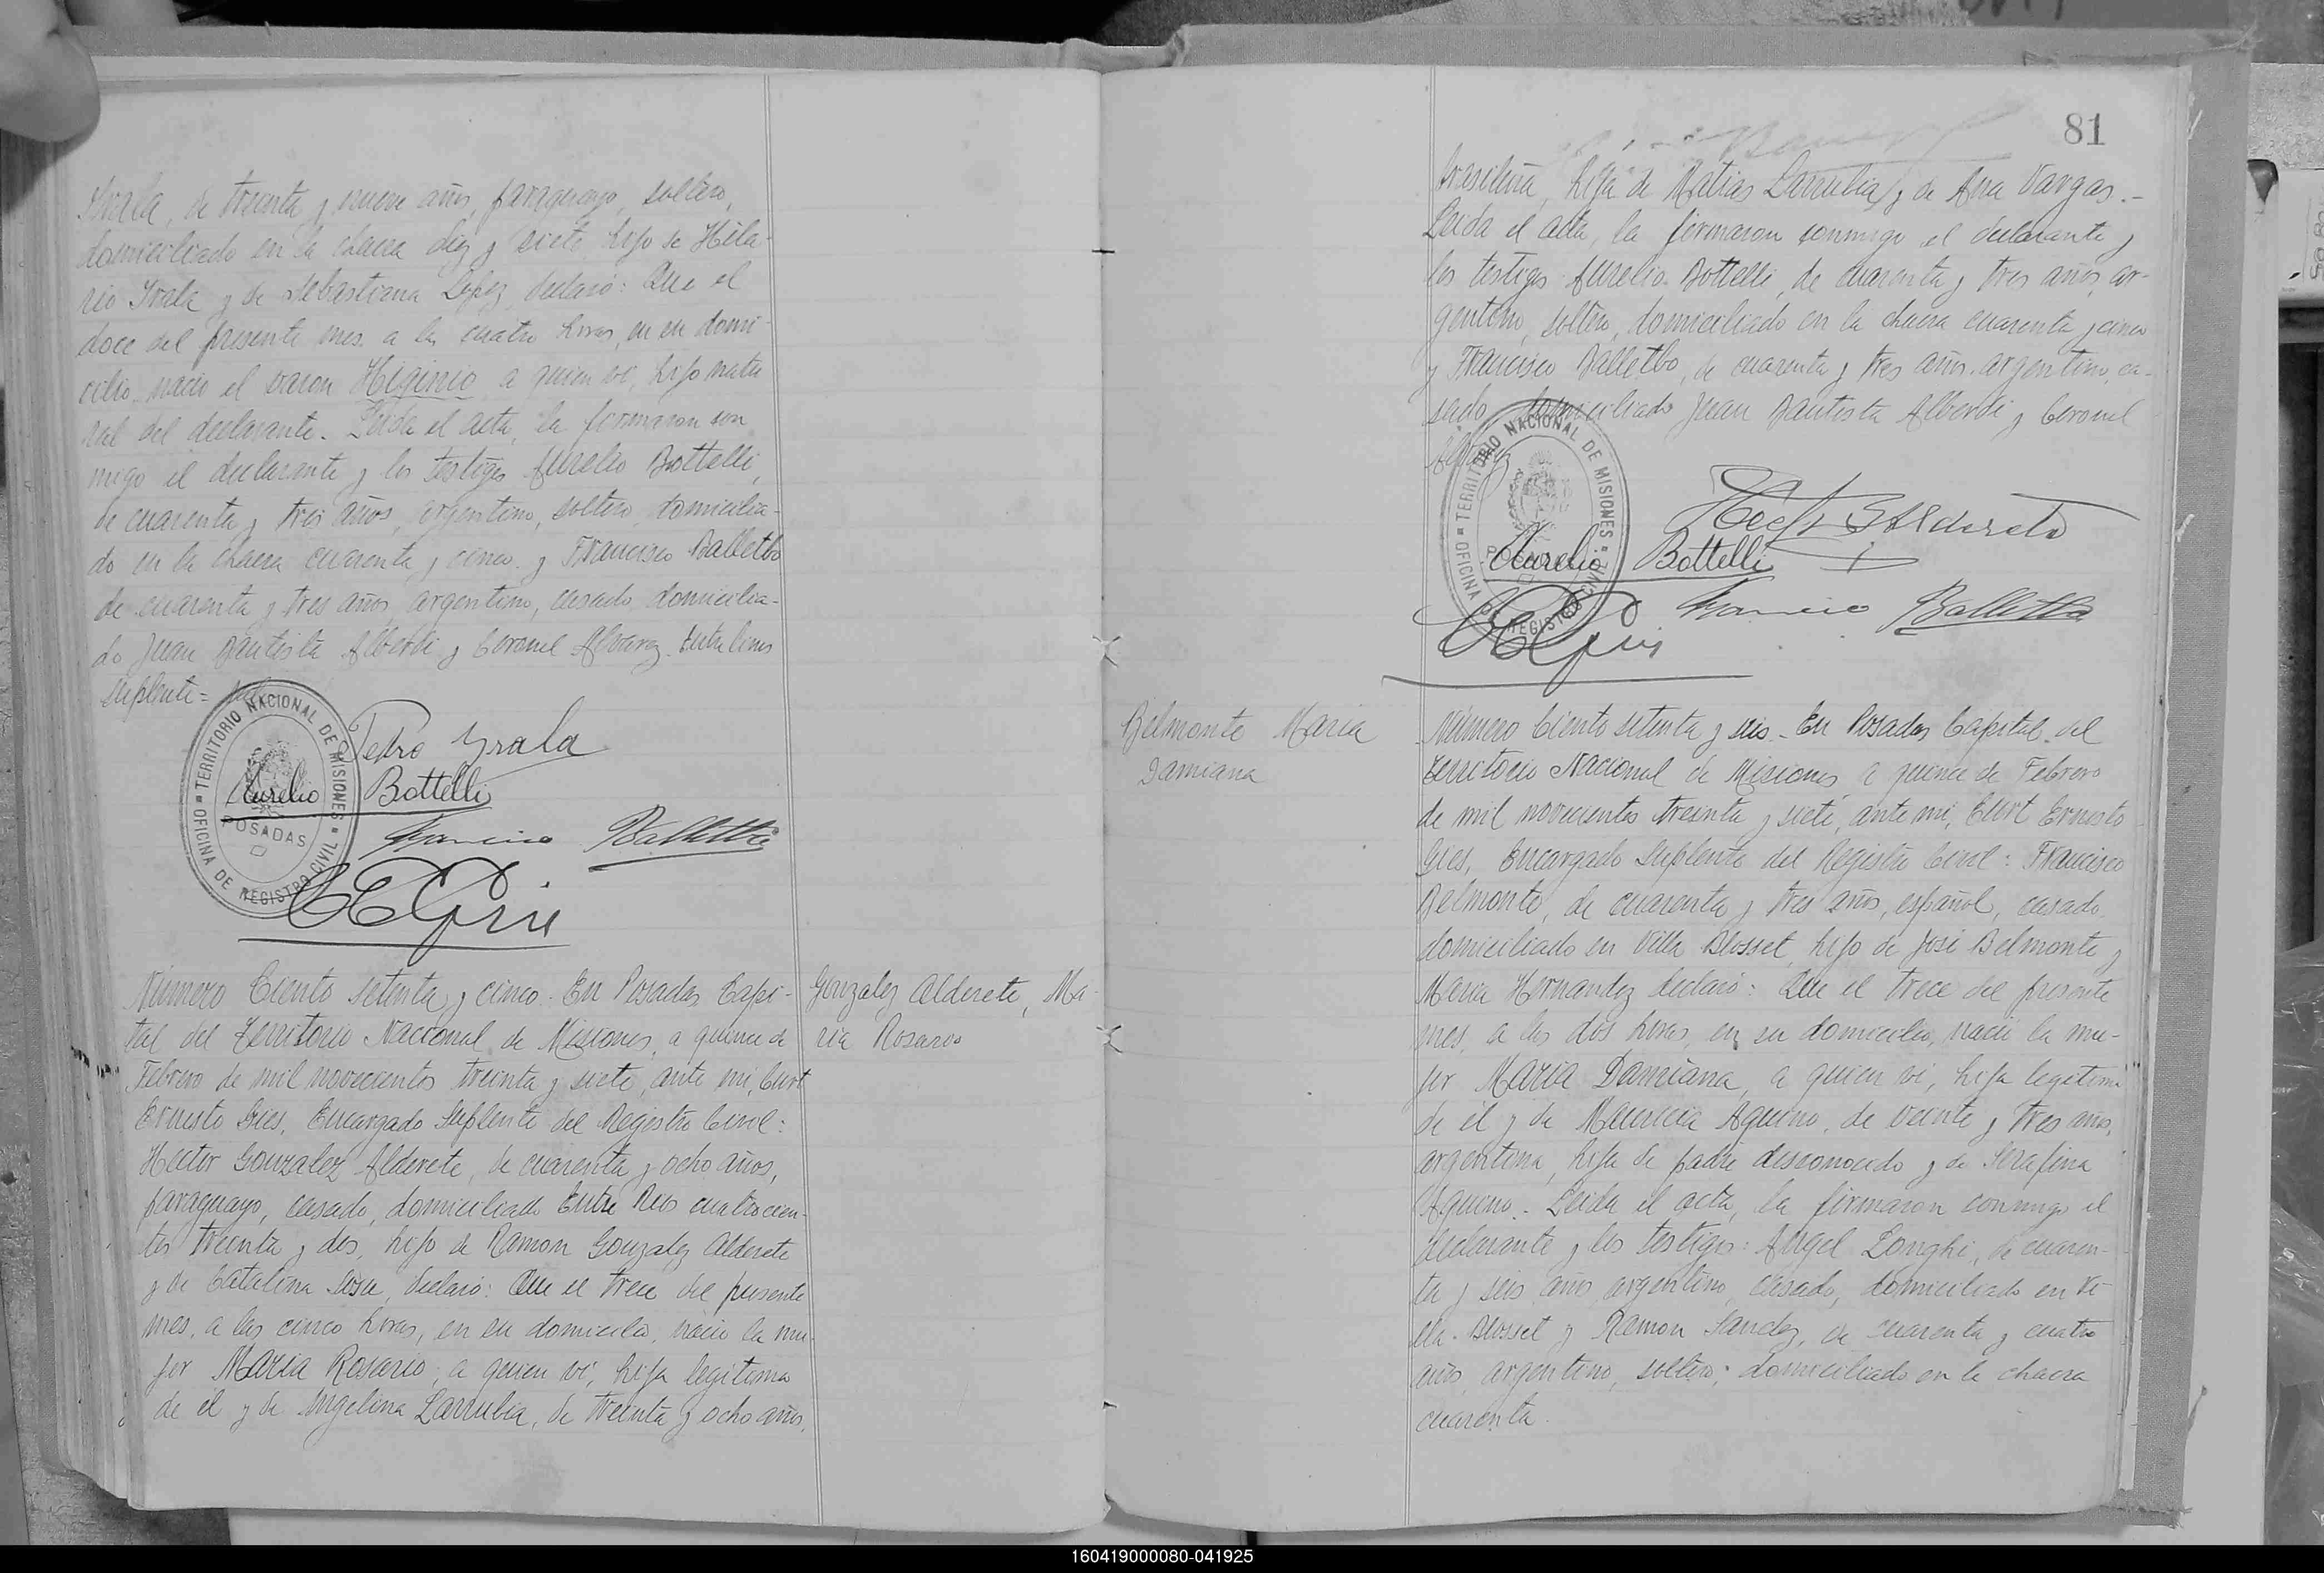 Irala, de treinta y nueve años, paraguayo, soltero,
domiciliado en la chacra diez y siete, hijo de Hila-
rio Irala y de Sebastiana Lopez, declaró: Que el
doce del presente mes, a las cuatro horas, en su domi-
cilio, nació el varon Higinio a quien vi, hijo natu
ral del declarante. Leida el acta, la firmaron con
migo el declarante y los testigos Aurelio Bottelli,
de cuarenta y tres años, argentino, soltero, domicilia-
do en la chacra cuarenta y cinco y Francisco Balletbo
de cuarenta y tres años, argentino, casado, domicilia-
do Juan Bautista Alberdi y Coronel Alvarez. Entre lineas
suplente = vale
TERRITORIO NACIONAL DE MISIONES
OFICINA DE REGISTRO CIVIL
POSADAS
Pedro Yrala
Aurelio Bottelli
Francisco Balletbo
CEGies
Número Ciento setenta y cinco. En Posadas Capi-
tal del Territorio Nacional de Misiones, a quince de
Febrero de mil novecientos treinta y siete, ante mi, Curt
Ernesto Gies, Encargado Suplente del Registro Civil:
Hector Gonzalez Alderete, de cuarenta y ocho años,
paraguayo, casado, domiciliado Entre Rios cuatrocien-
tos treinta y dos, hijo de Ramon Gonzalez Alderete
y de Catalina Sosa, declaró: Que el trece del presente
mes, a las cinco horas, en su domicilio, nació la mu-
jer Maria Rosario, a quien vi, hija legitima
de él y de Angelina Larrubia, de treinta y ocho años,
Gonzalez Alderete, Ma-
ria Rosario
81
brasileña, hija de Matias Larrubia y de Ana Vargas.-
Leida el acta, la firmaron conmigo el declarante y
los testigos Aurelio Bottelli, de cuarenta y tres años, ar-
gentino, soltero, domiciliado en la chacra cuarenta y cinco
y Francisco Balletbo, de cuarenta y tres años, argentino, ca-
sado, domiciliado Juan Bautista Alberdi y Coronel
Alvarez
TERRITORIO NACIONAL DE MISIONES
OFICINA DE REGISTRO CIVIL
POSADAS
Hector G Alderete
Aurelio Bottelli
Francisco Balletbo
CEGies
Belmonte Maria
Damiana
Número Ciento setenta y seis. En Posadas Capital del
Territorio Nacional de Misiones, a quince de Febrero
de mil novecientos treinta y siete, ante mi, Curt Ernesto
Gies, Encargado Suplente del Registro Civil: Francisco
Belmonte, de cuarenta y tres años, español, casado,
domiciliado en Villa Blosset, hijo de José Belmonte y
Maria Hernandez declaró: Que el trece del presente
mes, a las dos horas, en su domicilio, nació la mu-
jer Maria Damiana, a quien vi, hija legitima
de él y de Mauricia Aquino, de veinte y tres años,
argentina, hija de padre desconocido y de Serafina
Aquino. Leida el acta, la firmaron conmigo el
declarante y los testigos: Angel Longhi, de cuaren-
ta y seis años, argentino, casado, domiciliado en Vi
lla Blosset y Ramon Sandez, de cuarenta y cuatro
años, argentino, soltero, domiciliado en la chacra
cuarenta.
160419000080-041925